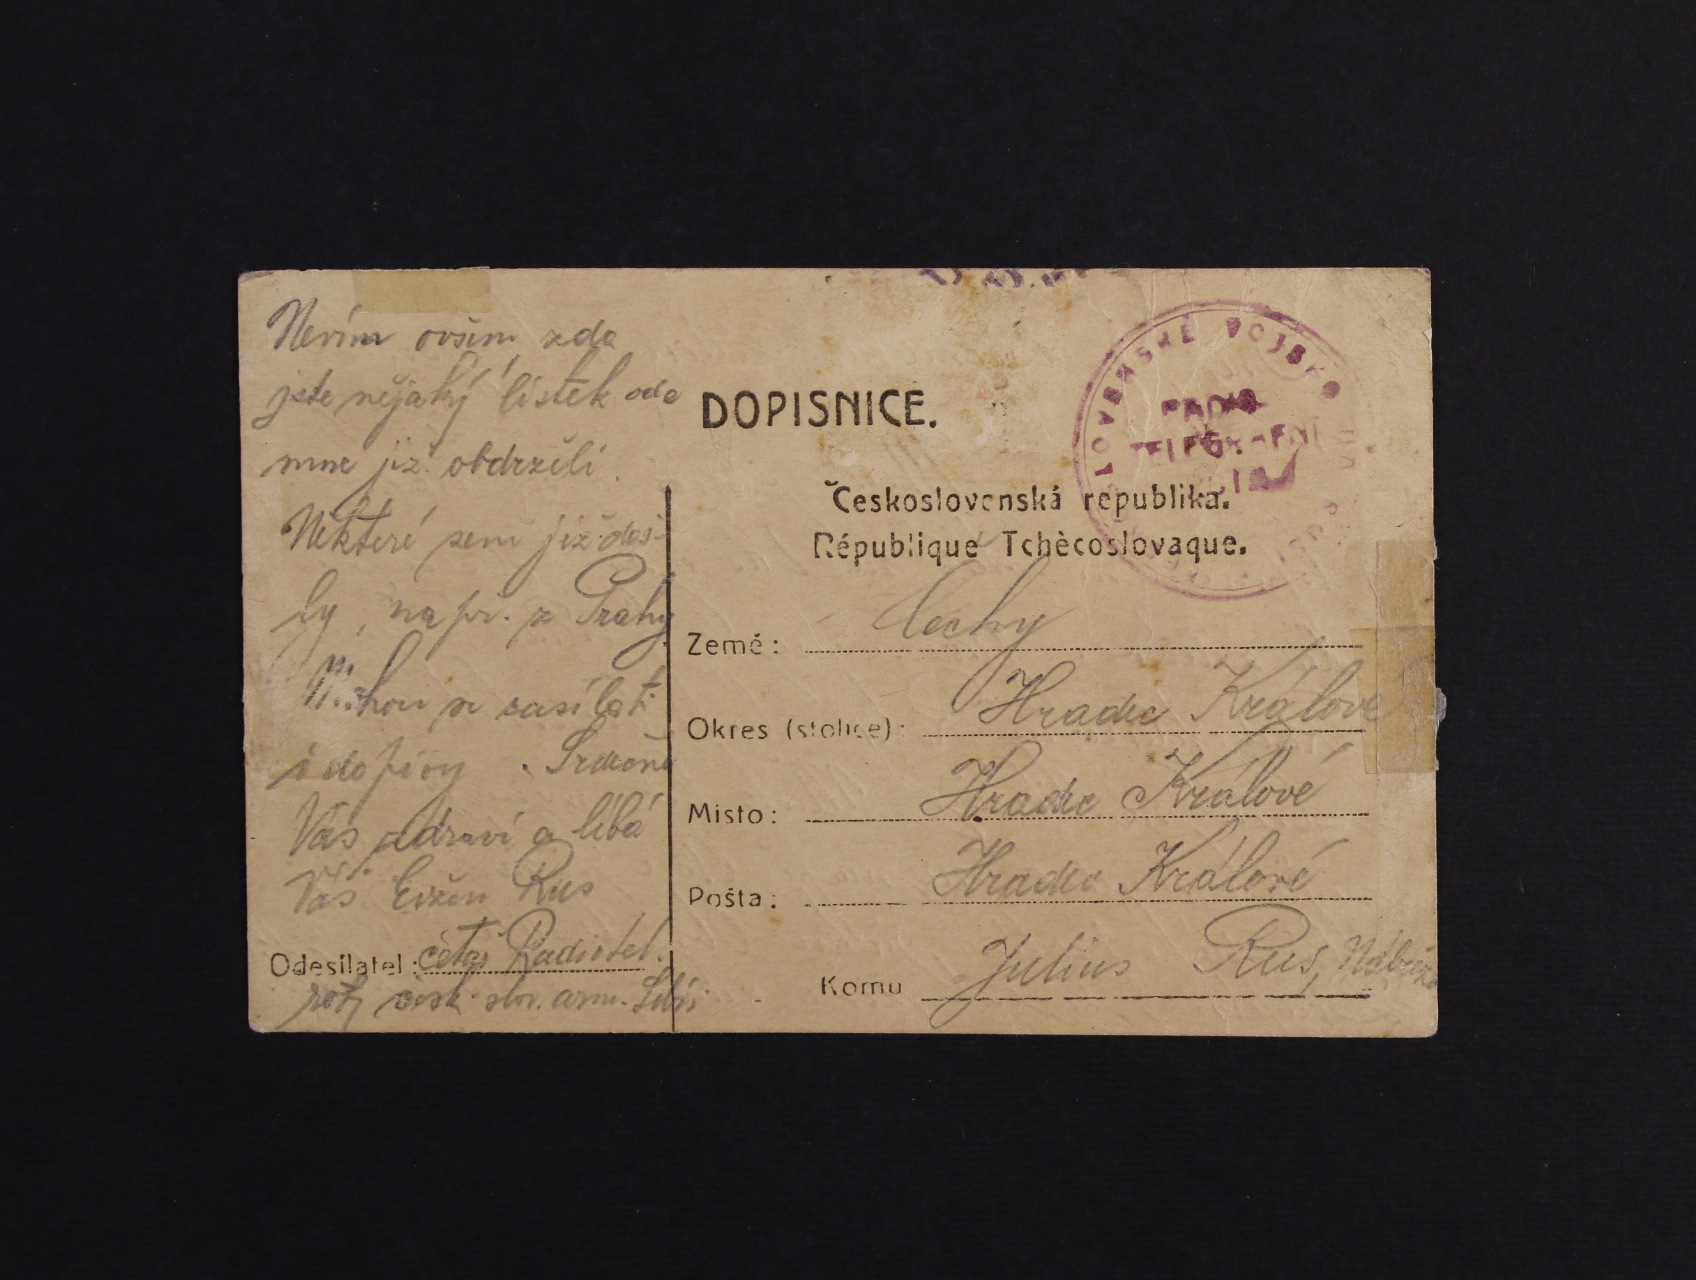 Nevím ovšem zda
jste nějaký lístek ode
mne již obdrželi.
Některé sem již doš-
ly, na př. z Prahy
Mohou se zasílati
i dopisy. Srdečně
Vás zdraví a líbá
Váš Evžen Rus
Odesílatel: četař Radiotel.
roty česk. slov. arm. Sibiř
DOPISNICE.
Československá republika.
République Tchècoslovaque.
Země: Čechy
Okres (stolice): Hradec Králové
Místo: Hradec Králové
Pošta: Hradec Králové
Komu Julius Rus,
SLOVENSKÉ VOJSKO NA RUSI
RADIO
TELEGRAFNÍ